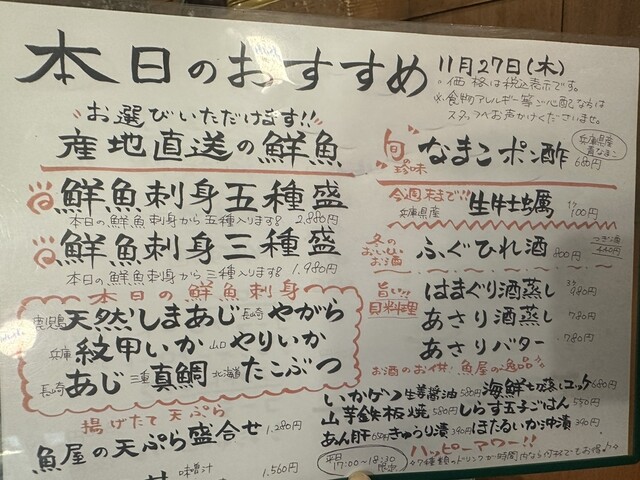 本日のおすすめ
11月27日(木)
・価格は税込表示です。
※食物アレルギー等ご心配な方は
スタッフへお声かけくださいませ。
お選びいただけます!!
産地直送の鮮魚
鮮魚刺身五種盛
本日の鮮魚刺身から五種入ります 2,880円
鮮魚刺身三種盛
本日の鮮魚刺身から三種入ります 1,980円
本日の鮮魚刺身
鹿児島 天然しまあじ 長崎 やがら
兵庫 紋甲いか 山口 やりいか
長崎 あじ 三重 真鯛 北海道 たこぶつ
揚げたて天ぷら
魚屋の天ぷら盛合せ 1,280円
味噌汁
1,560円
旬 珍味 なまこポン酢 兵庫県産 680円
今週末まで!!
兵庫県産 生牡蠣 100円
冬の
おいしい
お酒
ふぐひれ酒 800円 つぎ酒
旨い!!
貝料理
はまぐり酒蒸し 980円
あさり酒蒸し 780円
あさりバター 780円
お酒のお供!魚屋の逸品
いかゲソ生姜醤油 580円 海鮮ユッケ 680円
山芋鉄板焼 580円 しらす玉子ごはん 550円
あん肝 きゅうり漬 390円 ほたるいか沖漬 390円
ハッピーアワー!!
平日
17:00~18:30
限定
7種類のドリンクが時間内なら何杯でもお得!